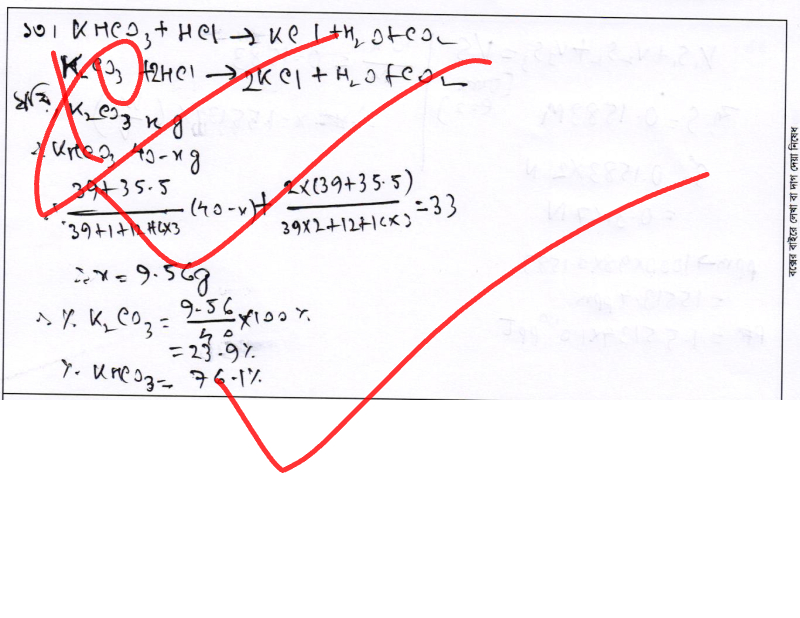 ১০। KHCO₃ + HCl → 2KCl + H₂O + CO₂
K₂CO₃ + 2HCl → 2KCl + H₂O + CO₂
ধরি, K₂CO₃ x g
∴ KHCO₃ 40-x g
∴ \frac{39+35.5}{39+1+12+16×3} (40-x) + \frac{2×(39+35.5)}{39×2+12+16×3} = 33
∴ x = 9.56g
∴ % K₂CO₃ = \frac{9.56}{40} × 100%
= 23.9%
% KHCO₃ = 76.1%
বক্সের বাইরে লেখা বা দাগ দেয়া নিষেধ